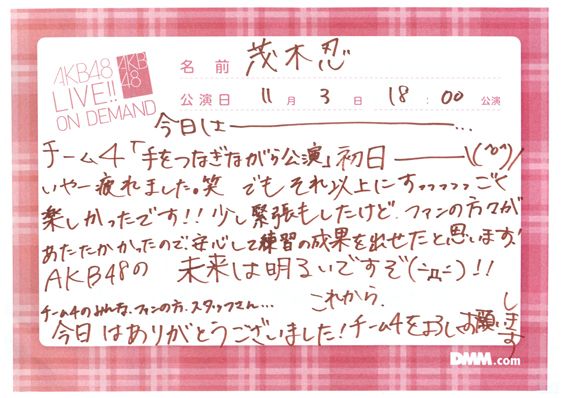 AKB48
LIVE!!
ON DEMAND
AKB
48
名前 茂木忍
公演日 11月3日 18:00公演
今日は―――――…
チーム4「手をつなぎながら公演」初日―――\(^o^)/
いやー疲れました。笑 でもそれ以上にすっっっっっごく
楽しかったです!!少し緊張もしたけど、ファンの方々が
あたたかかったので、安心して練習の成果を出せたと思います!
AKB48の 未来は明るいですぞ(ﾆдﾆ)!!
チーム4のみんな、ファンの方、スタッフさん…
これから、
今日はありがとうございました!チーム4をよろしくお願いします
DMM.com